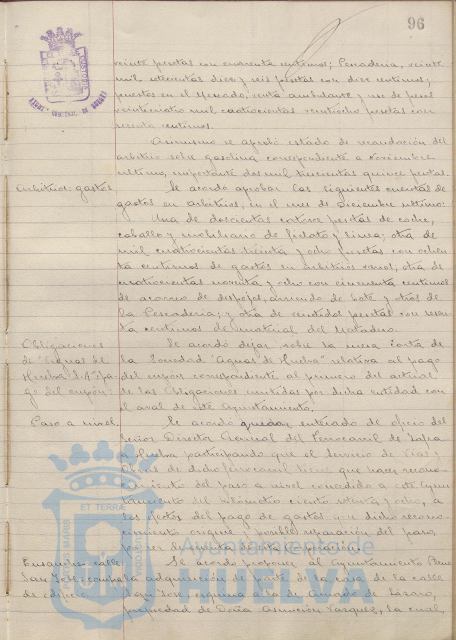 96
veinte pesetas con cuarenta centimos; Panaderia, veinte
mil setecientas diez y seis pesetas con diez centimos;
puestos en el Mercado, venta ambulante y uso de pesas
veinticuatro mil cuatrocientas veintiocho pesetas con
sesenta centimos.
Asimismo se aprobó estado de recaudacion del
arbitrio sobre gasolina correspondiente a Noviembre
ultimo, importante dos mil trescientas quince pesetas.
Arbitrios: gastos.
Se acordo aprobar las siguientes cuentas de
gastos en arbitrios, en el mes de Diciembre ultimo:
Una de doscientas catorce pesetas de coche,
caballo y mobiliario de fielato y limas; otra de
mil cuatrocientas treinta y ocho pesetas con ochen-
ta centimos de gastos en arbitrios varios, otra de
cuatrocientas noventa y ocho con cincuenta centimos
de acarreo de despojos, arriendo de bote y otros de
la Pescaderia; y otra de pesetas con
centimos de material del Matadero.
Obligaciones
de "Aguas de
Huelva S.A." pa-
go del cupon
Se acordó dejar sobre la mesa carta de
la Sociedad "Aguas de Huelva" relativa al pago
del cupon correspondiente al primero del actual
de las Obligaciones emitidas por dicha entidad con
el aval de este Ayuntamiento.
Paso a nivel.
Se acordo quedar enterado de oficio del
Señor Director General del Ferrocarril de Zafra
a Huelva participando que el Servicio de Vias y
Obras de dicho ferrocarril tiene que hacer recono-
cimiento del paso a nivel concedido a este Ayun-
tamiento del kilometro ciento setenta y ocho, a
los efectos del pago de gastos en dicho recono-
cimiento y posible reparación del paso,
por ser de cuenta de la Corporacion.
Ensanche calle
San José: compra
de edificio.
Se acordo proponer al Ayuntamiento Pleno
la adquisicion de parte de la casa de la calle
San José esquina a la de Amado de Lázaro,
propiedad de Doña Asunción Vazquez, la cual,
Ayuntamiento de
HUELVA